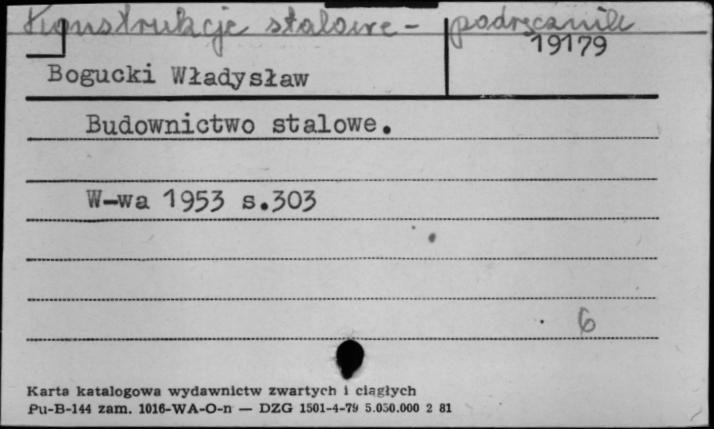 Konstrukcje stalowe - podręcznik
19179
Bogucki Władysław
Budownictwo stalowe.
W-wa 1953 s.303
6
Karta katalogowa wydawnictw zwartych i ciągłych
Pu-B-144 zam. 1016-WA-O-n — DZG 1501-4-79 5.050.000 2 81